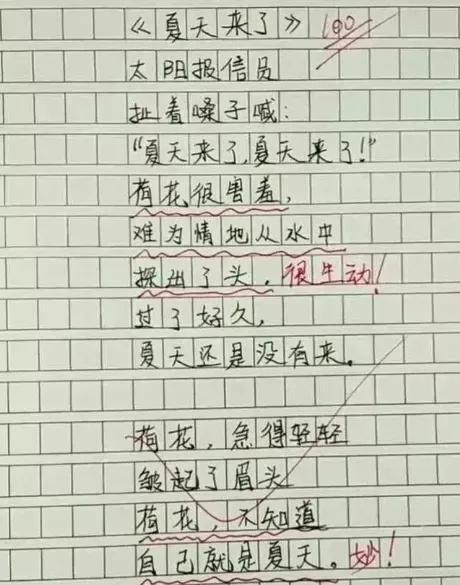 《夏天来了》 100
太阳报信员
扯着嗓子喊:
"夏天来了,夏天来了!"
荷花很害羞,
难为情地从水中
探出了头, 很生动!
过了好久,
夏天还是没有来。
荷花,急得轻轻
皱起了眉头
荷花,不知道
自己就是夏天。妙!